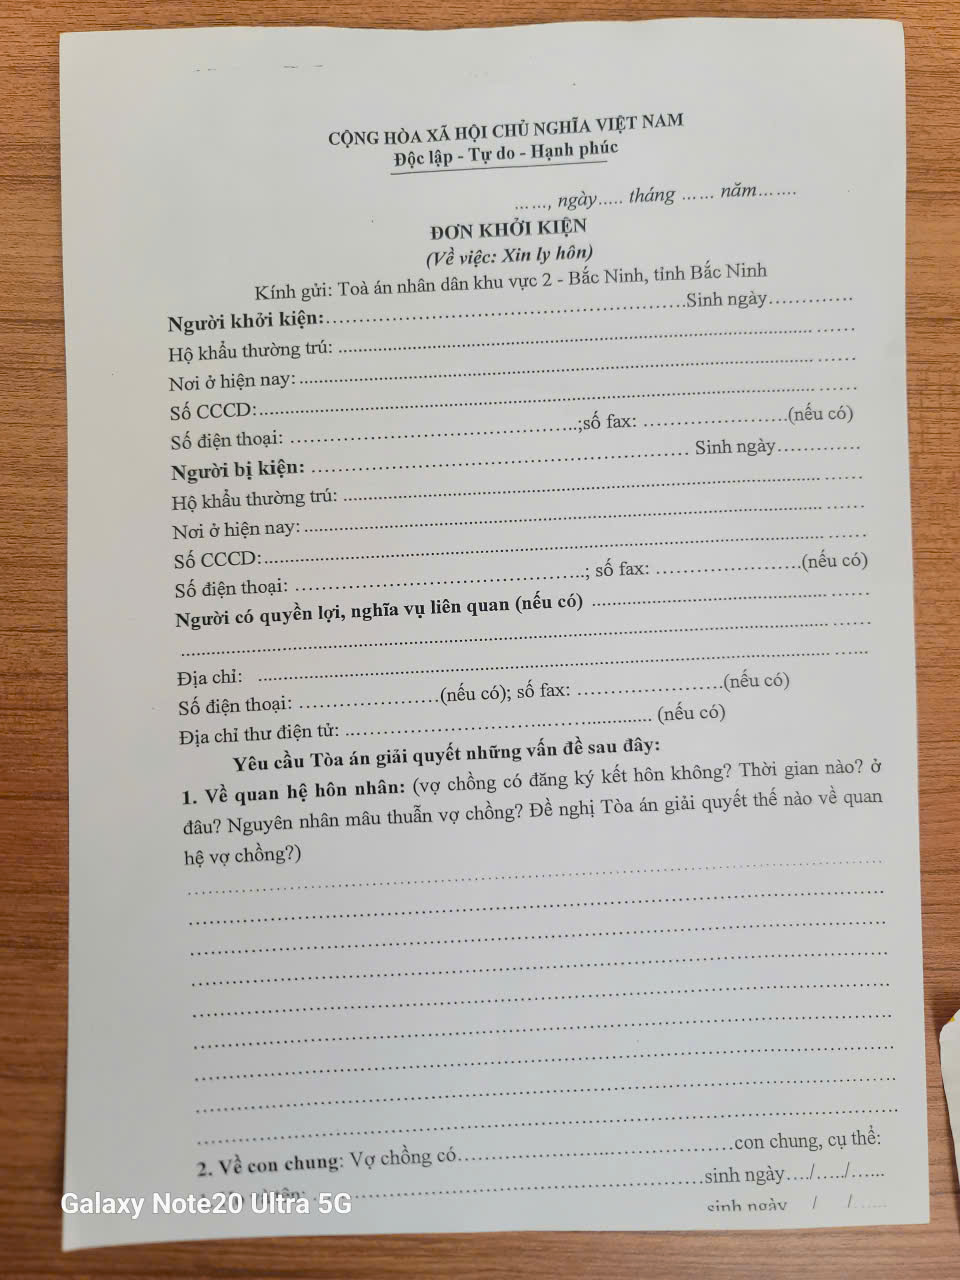 CỘNG HÒA XÃ HỘI CHỦ NGHĨA VIỆT NAM
Độc lập - Tự do - Hạnh phúc
......, ngày..... tháng ...... năm.......
ĐƠN KHỞI KIỆN
(Về việc: Xin ly hôn)
Kính gửi: Toà án nhân dân khu vực 2 - Bắc Ninh, tỉnh Bắc Ninh
Người khởi kiện:......................................................Sinh ngày.............
Hộ khẩu thường trú: ......................................................................
Nơi ở hiện nay: ......................................................................
Số CCCD:......................................................................
Số điện thoại: ........................................;số fax: ....................(nếu có)
Người bị kiện: ...................................................... Sinh ngày.............
Hộ khẩu thường trú: ......................................................................
Nơi ở hiện nay: ......................................................................
Số CCCD:......................................................................
Số điện thoại: ........................................; số fax: ....................(nếu có)
Người có quyền lợi, nghĩa vụ liên quan (nếu có) ........................................
................................................................................
Địa chỉ: ......................................................................
Số điện thoại: ....................(nếu có); số fax: ....................(nếu có)
Địa chỉ thư điện tử: ........................................ (nếu có)
Yêu cầu Tòa án giải quyết những vấn đề sau đây:
1. Về quan hệ hôn nhân: (vợ chồng có đăng ký kết hôn không? Thời gian nào? ở
đâu? Nguyên nhân mâu thuẫn vợ chồng? Đề nghị Tòa án giải quyết thế nào về quan
hệ vợ chồng?)
................................................................................
................................................................................
................................................................................
................................................................................
................................................................................
................................................................................
................................................................................
................................................................................
................................................................................
2. Về con chung: Vợ chồng có........................................con chung, cụ thể:
......................................................sinh ngày..../...../......
sinh ngày / /......
Galaxy Note20 Ultra 5G